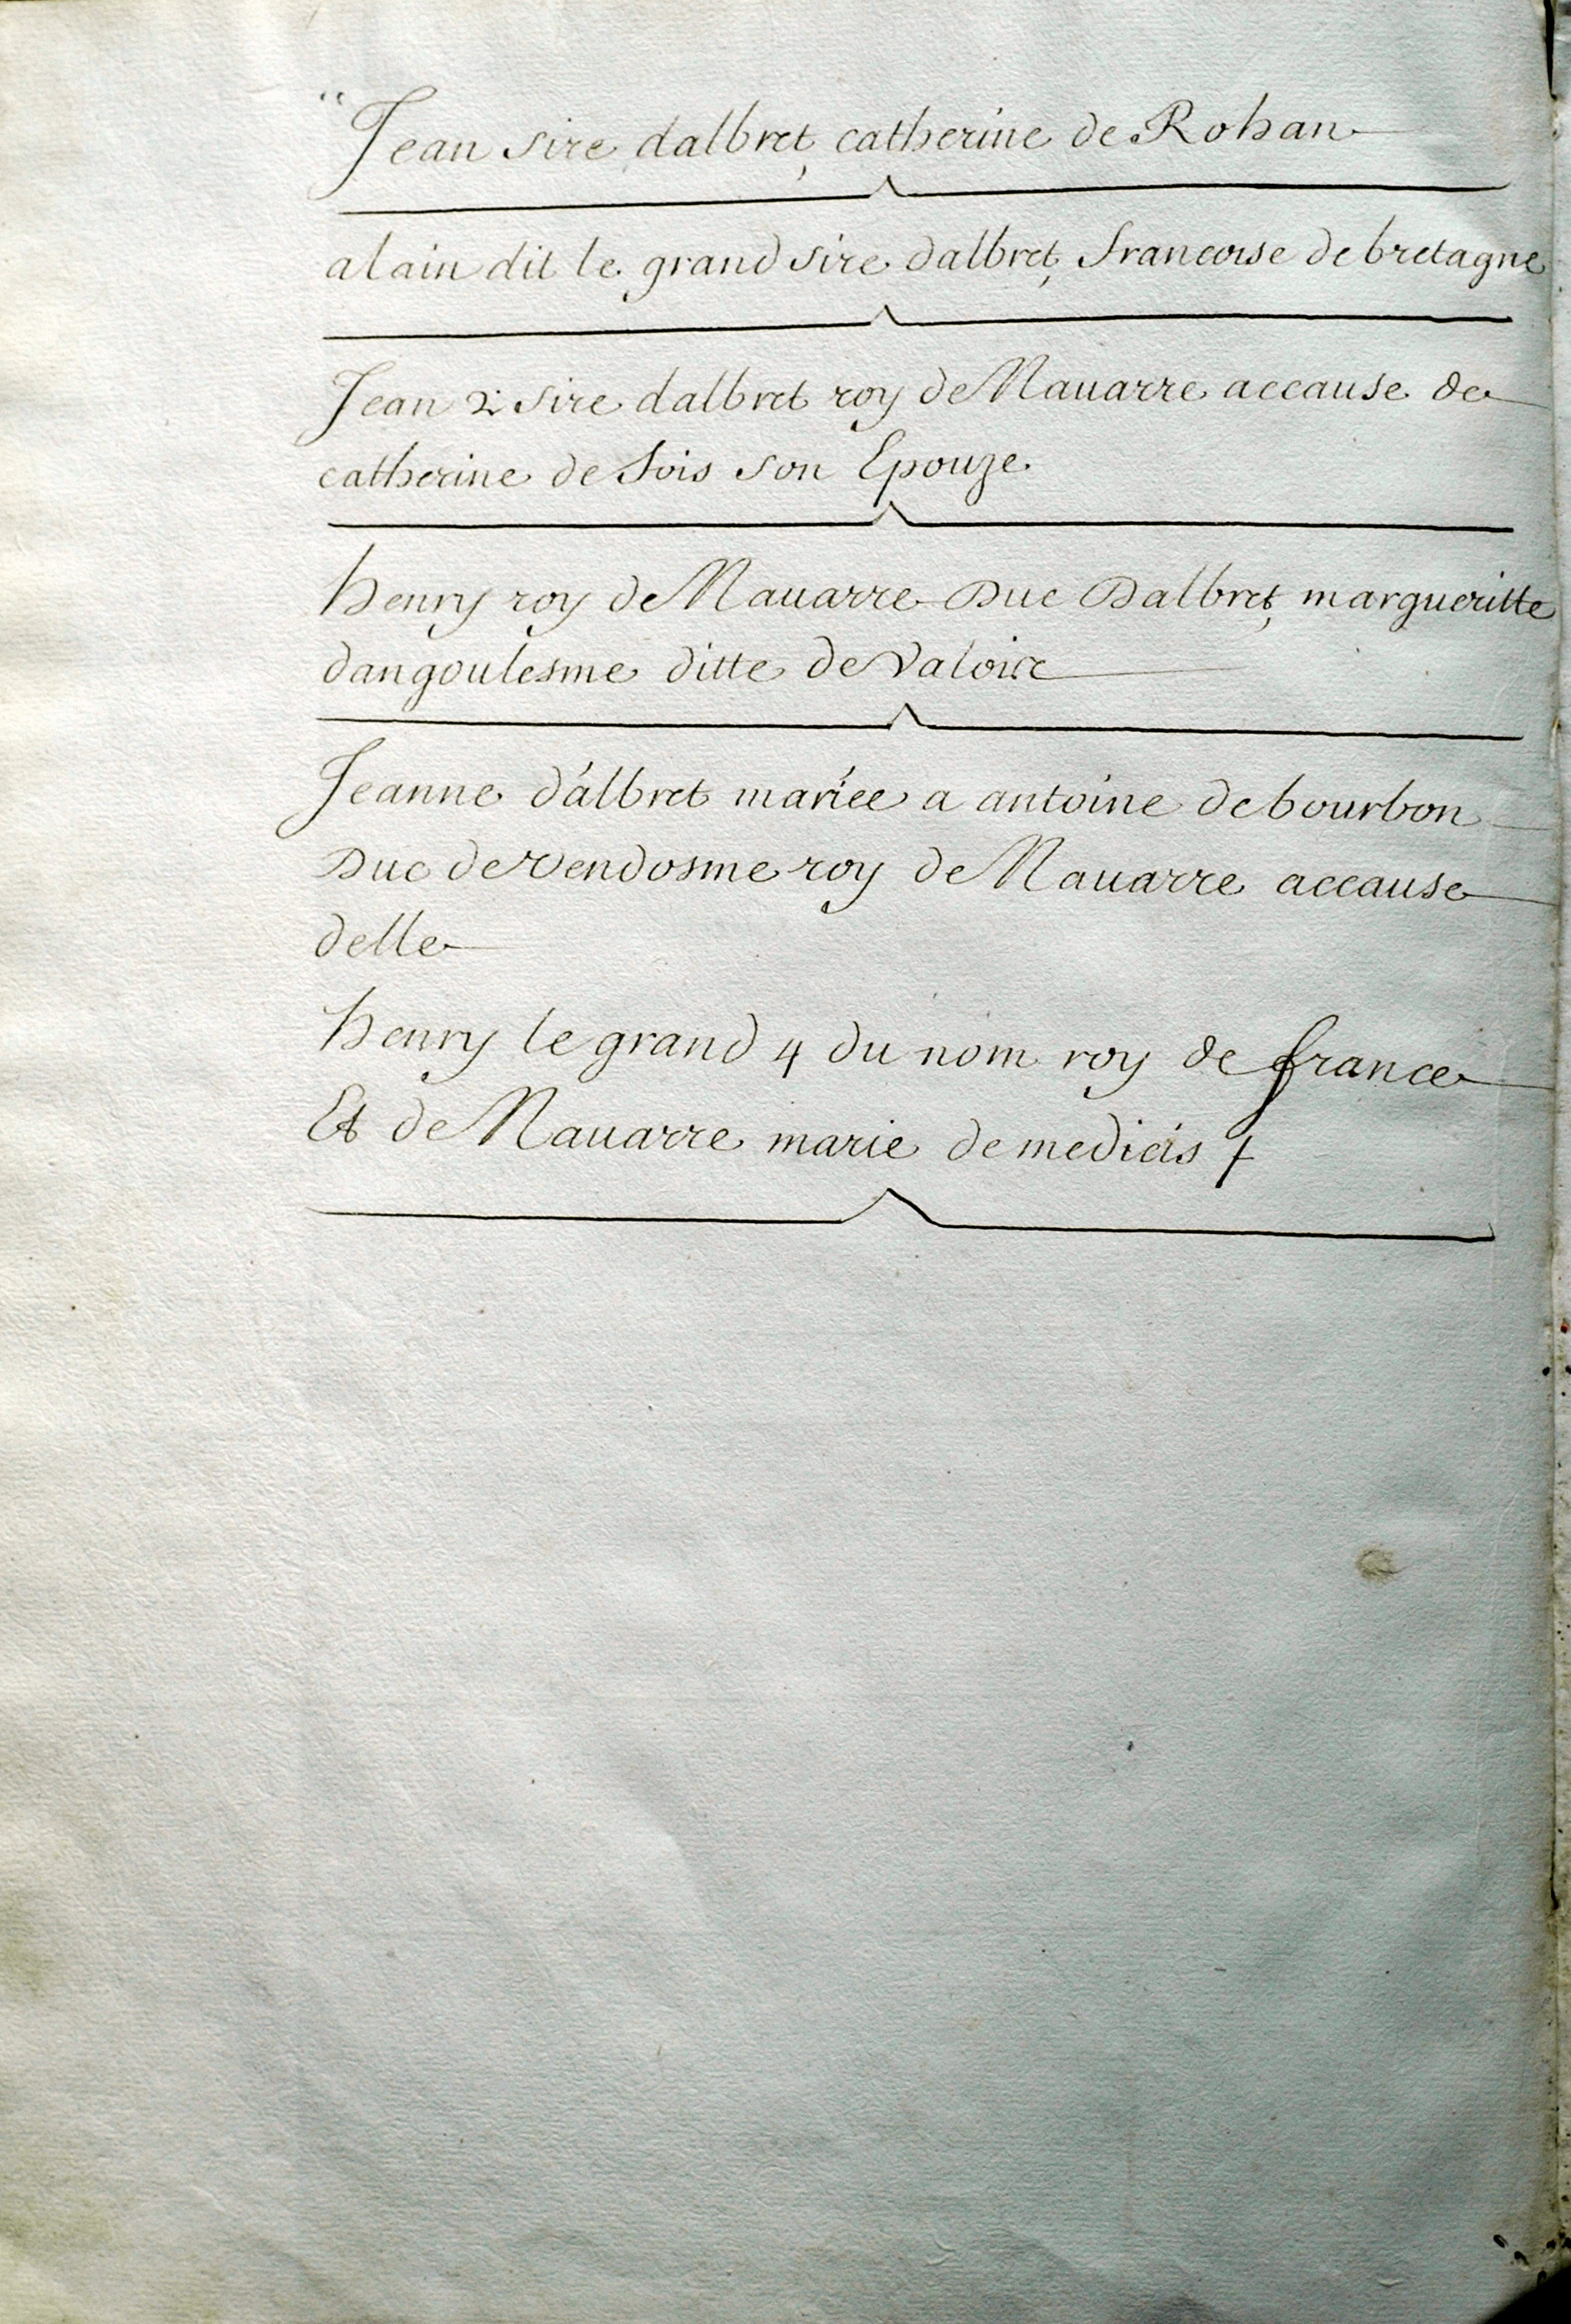 Jean sire dalbret, catherine de Rohan
alain dit le grand sire dalbret, francoise de bretagne
Jean 2 sire dalbret roy de Nauarre accause de
catherine de fois son Epouze
henry roy de Nauarre Duc Dalbret, margueritte
dangoulesme ditte de Valois
Jeanne d'albret mariée a antoine de bourbon
Duc de vendosme roy de Nauarre accause
delle
henry le grand 4 du nom roy de france
Et de Nauarre marie de medicis